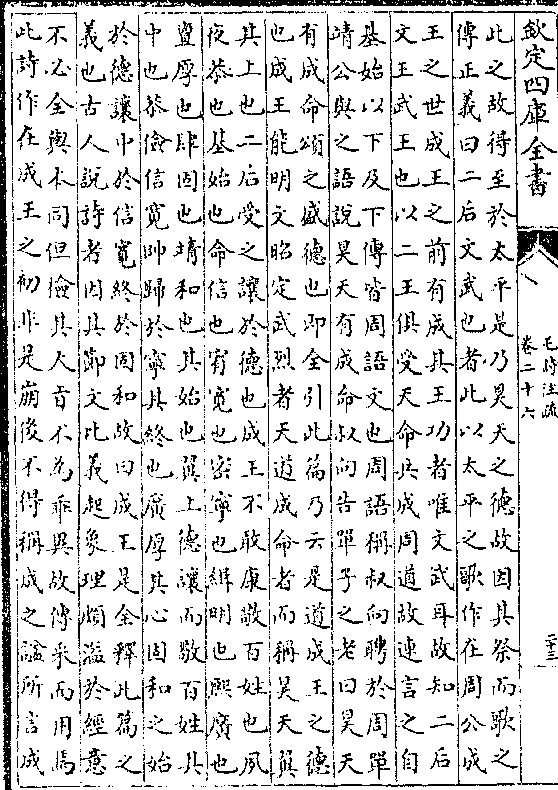 欽定四庫全書
毛詩注疏
卷二十六
二十三
此之故得至於太平是乃昊天之德故因其祭而歌之
傳正義曰二后文武也者此以太平之歌作在周公成
王之世成王之前有成其王功者唯文武耳故知二后
文王武王也以二王俱受天命共成周道故連言之自
基始以下及下傳皆周語文也周語稱叔向聘於周單
靖公與之語說昊天有成命叔向告單子之老曰昊天
有成命頌之盛德也即全引此篇乃云是道成王之德
也成王能明文昭定武烈者夫道成命者而稱昊天翼
其上也二后受之讓於德也成王不敢康敬百姓也夙
夜恭也基始也命信也宥寬也密寧也緝明也熙廣也
亶厚也肆固也靖和也其始也翼上德讓而敬百姓其
中也恭儉信寬帥歸於寧其終也廣厚其心固和之始
於德讓中於信寬終於固和故曰成王是全釋此篇之
義也古人說詩者因其節文比義起象理頗溢於經意
不必全與本同但檢其大旨不為乖異故傳采而用焉
此詩作在成王之初非是崩後不得稱成之諡所言成